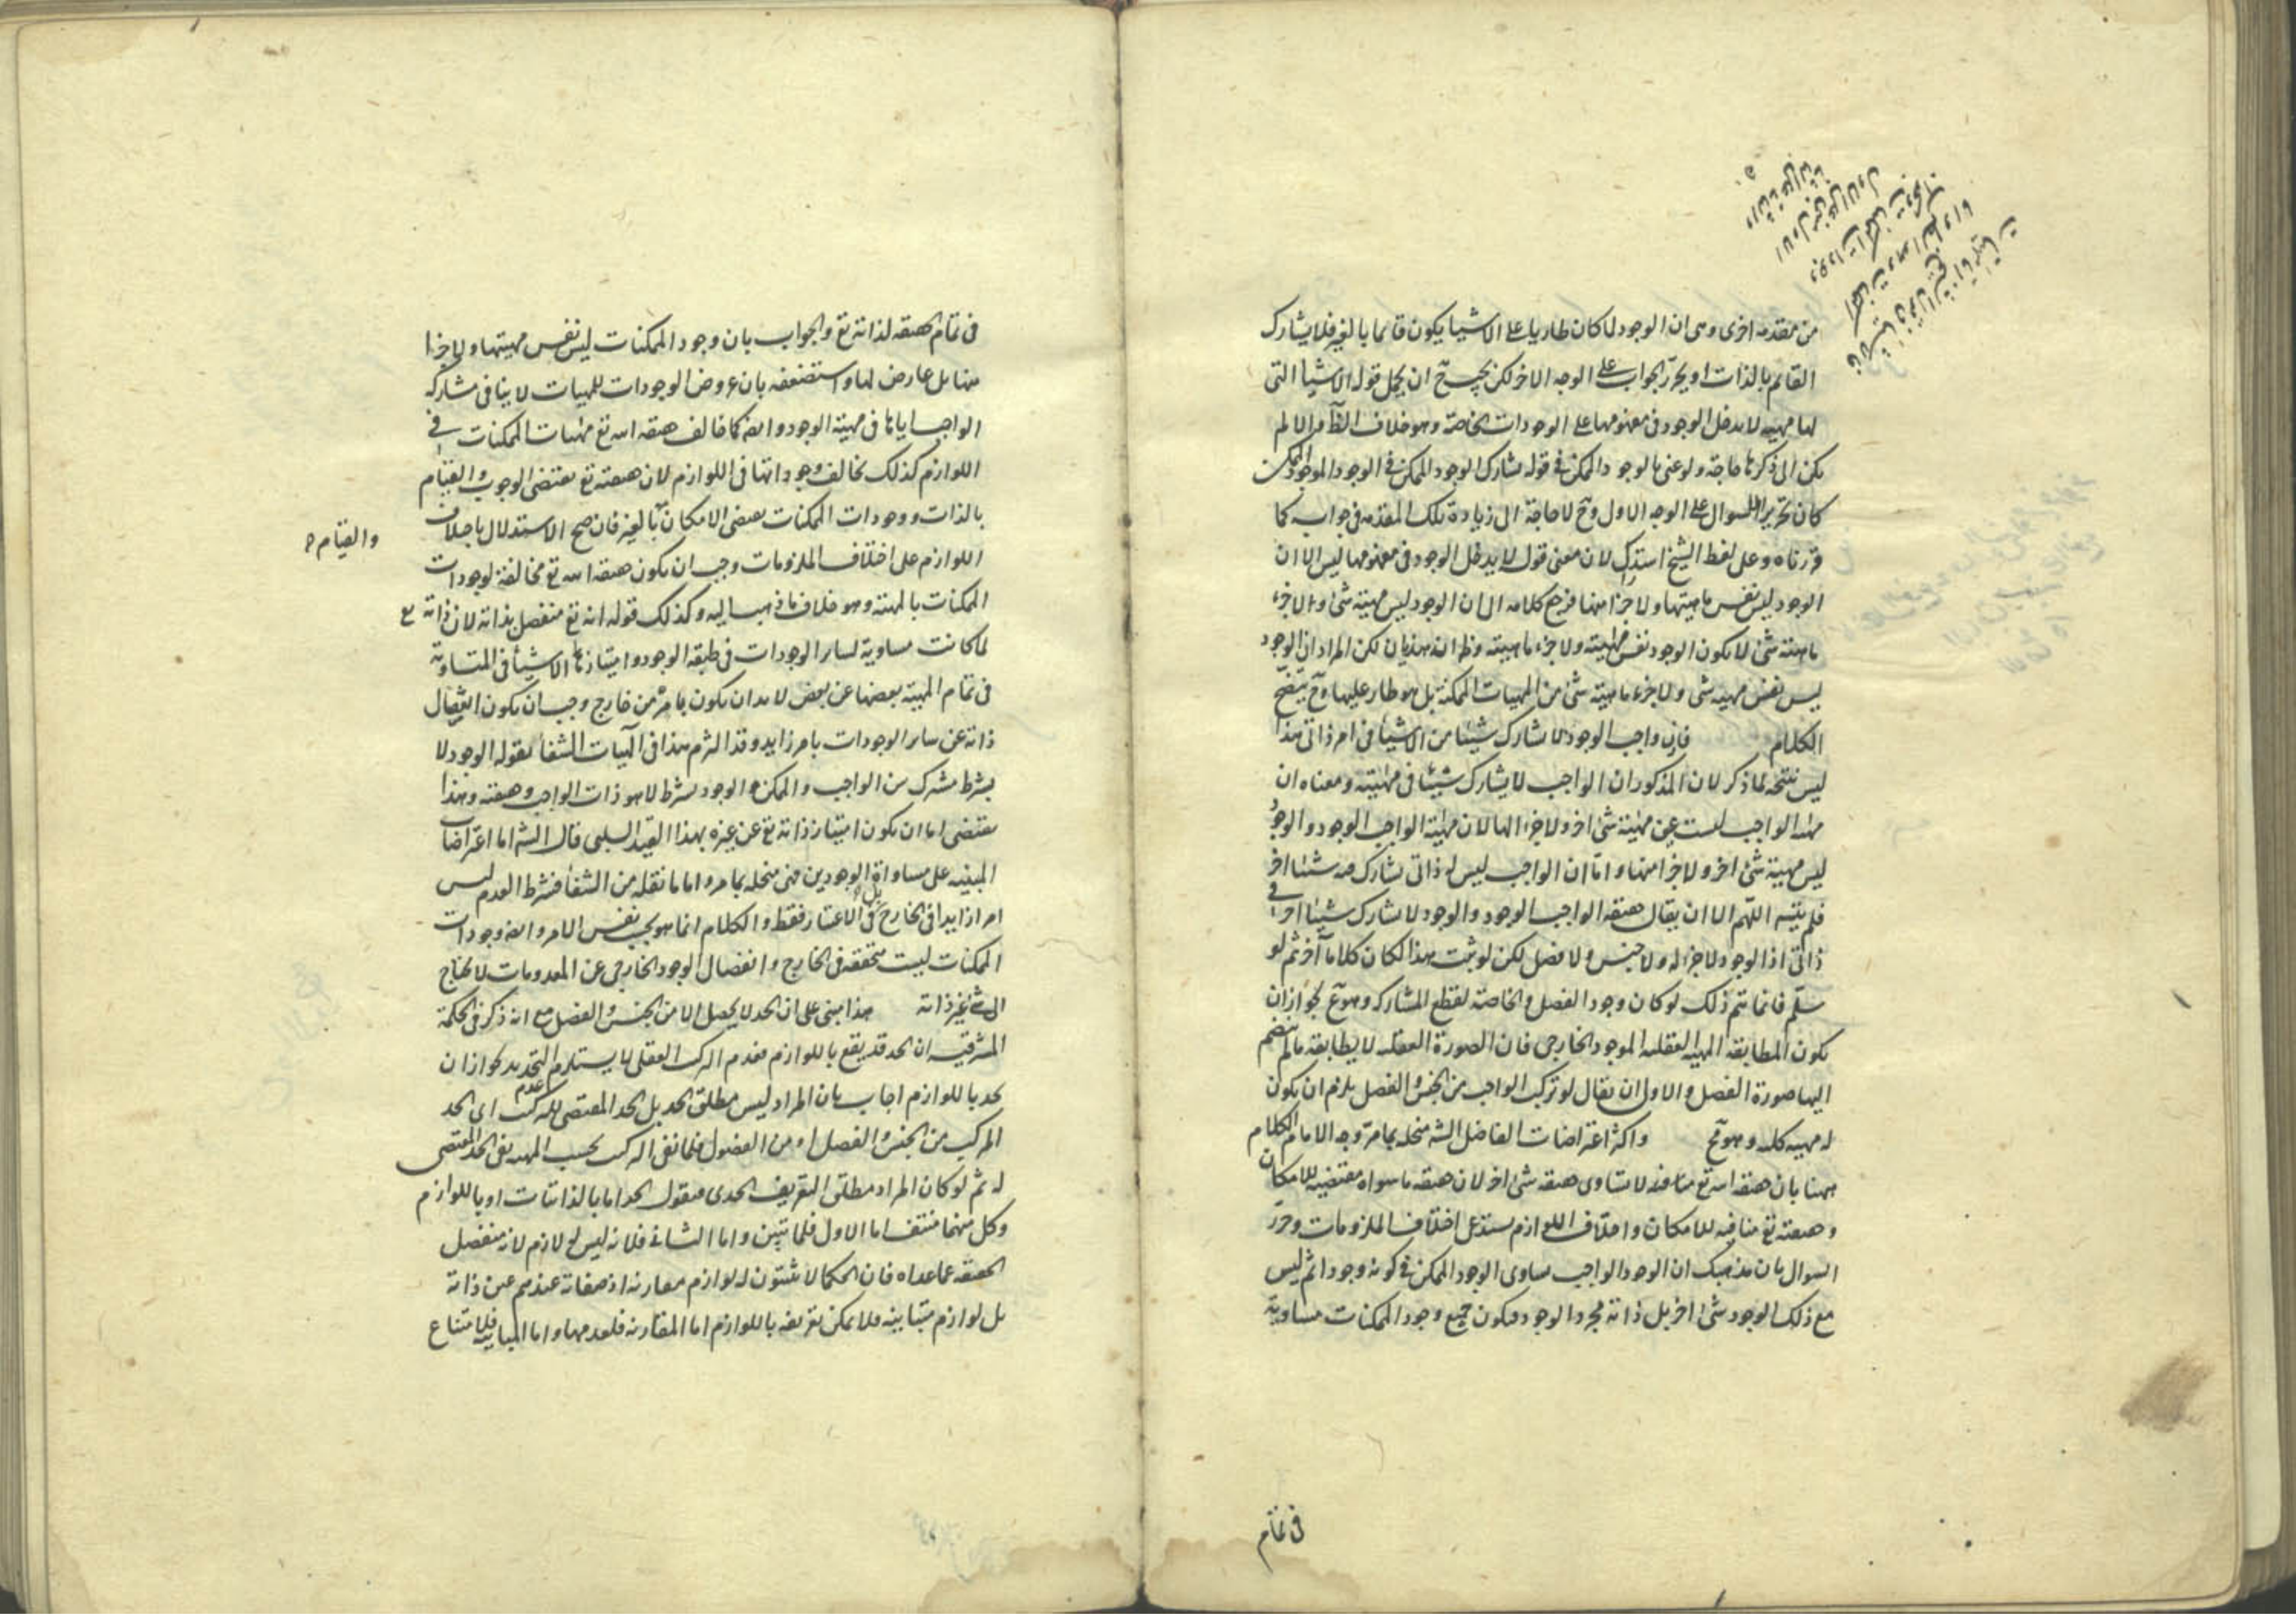 من مقدمه اخرى وهى ان الوجود لما كان طاريا على الاشيا يكون قائما بالغير فلا يشارك
القائم بالذات او يحرّر الجواب على الوجه الاخر لكن يجب ح ان يحمل قوله الاشيا التى
لها مهيه لا يدخل الوجود فى مفهومها على الوجودات الخاصة وهو خلاف الظاهر والا لم
يكن الى ذكرها حاجة ولو عنى بالوجود الممكن فى قوله يشارك الوجود الممكن فى الوجود الموجود الممكن
كان تحرير السوال على الوجه الاول وح لا حاجة الى زيادة تلك المقدمه فى جوابه كما
قررناه وعلى لفظ الشيخ استدراك لان معنى قوله لا يدخل الوجود فى مفهومها ليس الا ان
الوجود ليس نفس ماهيتها ولا جزا منها فرجع كلامه الى ان الوجود ليس مهية شئ ولا جزء
ماهية شئ لا يكون الوجود نفس مهيته ولا جزء ماهيته وظ انه هذيان لكن المراد ان الوجود
ليس نفس مهيه شئ ولا جزء ماهية شئ من المهيات الممكنة بل هو طار عليها وح يتضح
الكلام فان واجب الوجود لا يشارك شيئا من الاشيأ فى امر ذاتى هذا
ليس نتيجه لما ذكر لان المذكور ان الواجب لا يشارك شيئا فى مهيته ومعناه ان
مهية الواجب ليست عين مهية شئ اخر ولا جزء الها لان مهية الواجب الوجود والوجود
ليس مهية شئ اخر ولا جزا منها واما ان الواجب ليس له ذاتى يشارك فيه شيئا اخر
فلم يتبين اللهم الا ان يقال حقيقه الواجب الوجود والوجود لا يشارك شيئا اخر فى
ذاتى اذ الوجود لا جزء له ولا جنس ولا فصل لكن لو ثبت هذا لكان كلاما آخر ثم لو
سلّم فانما يتم ذلك لو كان وجود الفصل والخاصة لقطع المشاركه وهو مع لجواز ان
يكون المطابقه المهيه العقليه الموجود الخارجى فان الصورة العقليه لا يطابقه مالم ينضم
اليها صورة الفصل والاولى ان يقال لو تركب الواجب من الجنس والفصل يلزم ان يكون
له مهيه كليه وهو مح واكثر اعتراضات الفاضل الشه منحله بما مرّ وجه الامام الكلام
ههنا بان حقيقه الله تع لا تساوى حقيقه شئ اخر لان حقيقه ما سواه مقتضيه للامكان
وحقيقته تع منافيه للامكان واختلاف اللوازم يستدعى اختلاف الملزومات وحرّر
السوال بان مذهبك ان الوجود الواجب يساوى الوجود الممكن فى كونه وجودا ثم ليس
مع ذلك الوجود شئ اخر بل ذاته مجرد الوجود فيكون جميع وجود الممكنات مساوية
فى تمام
فى تمام الحقيقه لذاته تع والجواب بان وجود الممكنات ليس نفس مهيتها ولا جزا
منها بل عارض لها واستضعفه بان عروض الوجودات للمهيات لا ينافى مشاركه
الواجب اياها فى مهية الوجود وايضا كما خالف حقيقه الله تع مهيات الممكنات فى
اللوازم كذلك يخالف وجوداتها فى اللوازم لان حقيقته تع يقتضى الوجوب والقيام
بالذات ووجودات الممكنات يقتضى الامكان بالغير فان صح الاستدلال باختلاف
والقيام
اللوازم على اختلاف الملزومات وجب ان يكون حقيقه الله تع مخالفة لوجودات
الممكنات بالمهيه وهو خلاف ما ذهب اليه وكذلك قوله انه تع منفصل بذاته لان ذاته تع
لما كانت مساوية لسائر الوجودات فى طبيعه الوجود وامتياز الاشيأ المتساوية
فى تمام المهية بعضها عن بعض لا بد ان يكون بامر من خارج وجب ان يكون انفصال
ذاته عن ساير الوجودات بامر زايد وقد التزم هذا فى آلهيات الشفأ بقوله الوجود لا
بشرط مشترك بين الواجب والممكن والوجود بشرط لا هو ذات الواجب وحقيقته وهذا
يقتضى اما ان يكون امتياز ذاته تع عن غيره بهذا القيد السلبى قال الشه اما اعتراضاته
المبنيه على مساواة الوجودين فهى منحله بما مر واما ما نقله من الشفأ فشرط العدم ليس
امرا زايدا فى الخارج بل فى الاعتبار فقط والكلام انما هو بحسب نفس الامر وايضا وجودات
الممكنات ليست متحققه فى الخارج وانفصال الوجود الخارجى عن المعدومات لا يحتاج
الى شئ غير ذاته هذا مبنى على ان الحد لا يحصل الا من الجنس والفصل مع انه ذكر فى الحكمة
المشرقيه ان الحد قد يقع باللوازم فعدم التركب العقلى لا يستلزم عدم التحديد لجواز ان
يحد باللوازم اجاب بان المراد ليس مطلق الحد بل الحد المقتضى للتركب اى الحد
المركب من الجنس والفصل او من الفصول فلما نفى التركب بحسب المهيه نفى الحد المقتضى
له ثم لو كان المراد مطلق التعريف الحدى فنقول الحد اما بالذاتيات او باللوازم
وكل منهما منتف اما الاول فلما تبين واما الثانى فلانه ليس له لازم لانه منفصل
الحقيقه عما عداه فان الحكما لا يثبتون له لوازم مقارنه اذ صفاته عندهم عين ذاته
بل لوازم متباينه فلا يمكن تعريفه باللوازم اما المقارنه فلعدمها واما المباينه فلامتناع